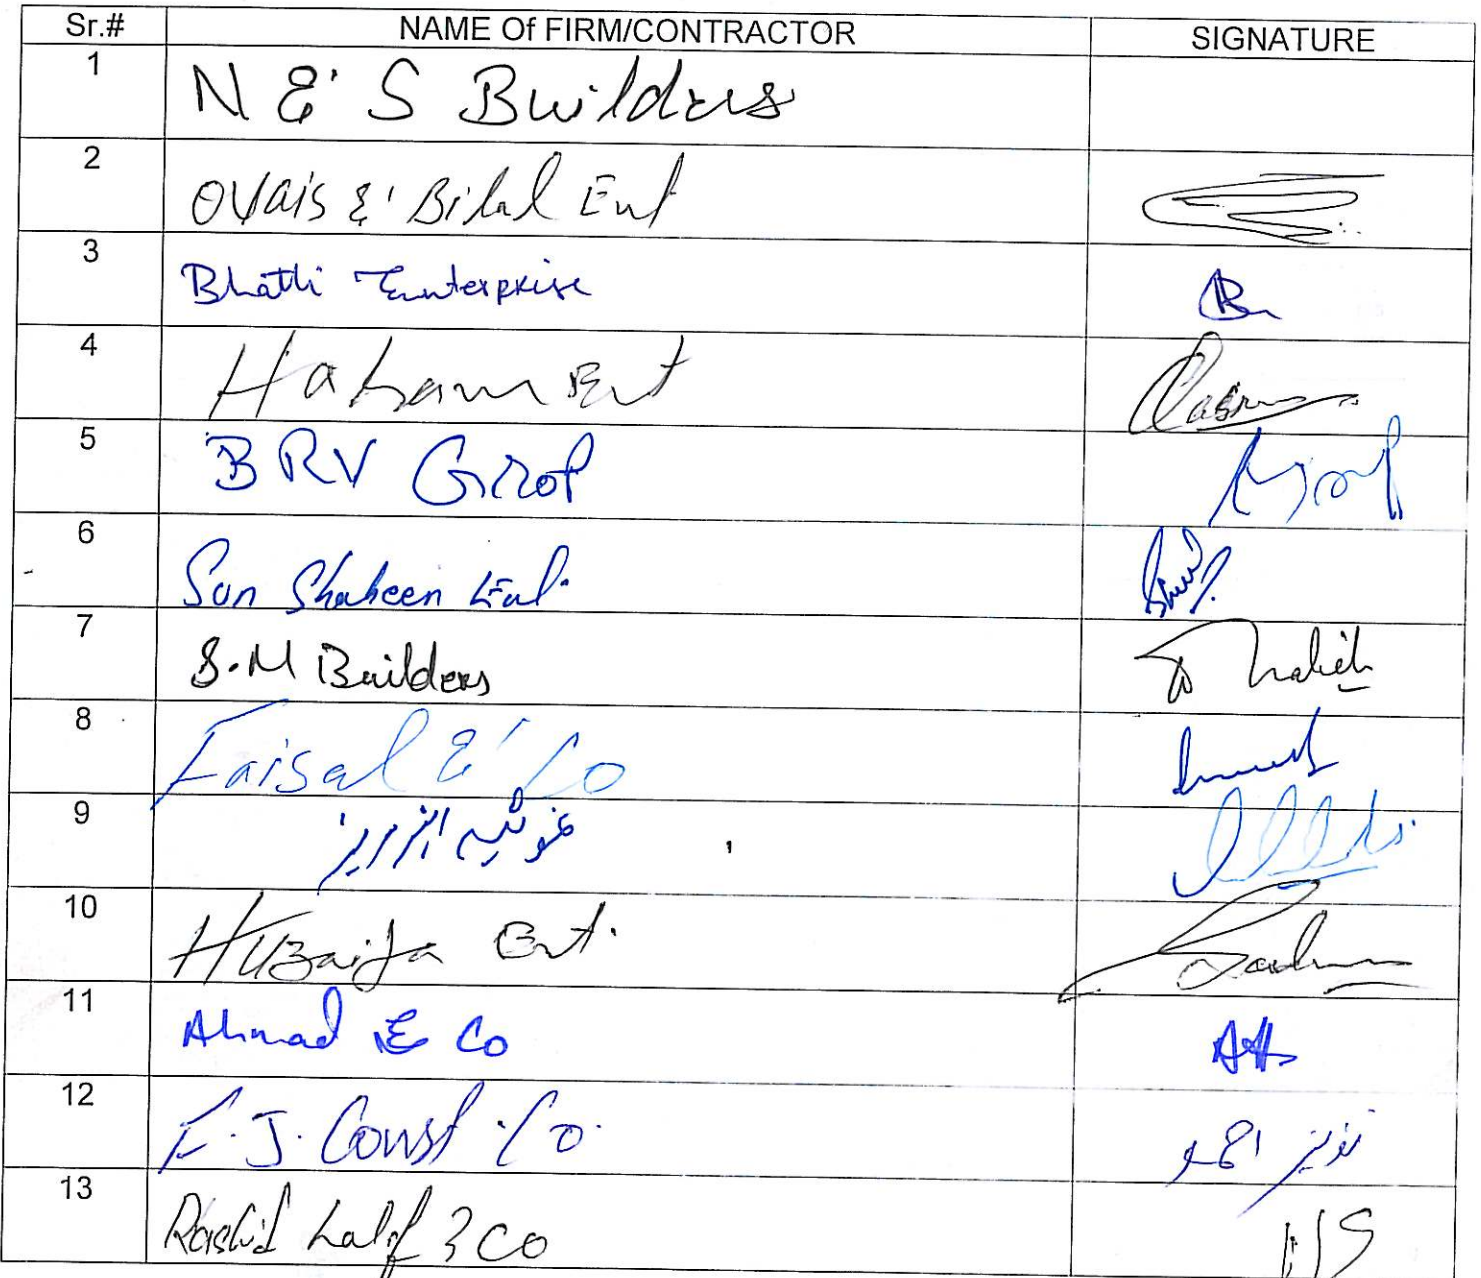 Sr.# NAME Of FIRM/CONTRACTOR SIGNATURE
1 N & S Builders
2 OVais & Bilal Ent
3 Bhatti Enterprise
4 Ent
5 BRV Grrop
6 Sun Shaheen Ent.
7 S.M Builders
8 Faisal & Co
9 غوثیہ انٹرپرایز
10 HUzaifa Ent.
11 Ahmad & Co
12 F.J. Const. Co.
13 Rashid Latif & CO